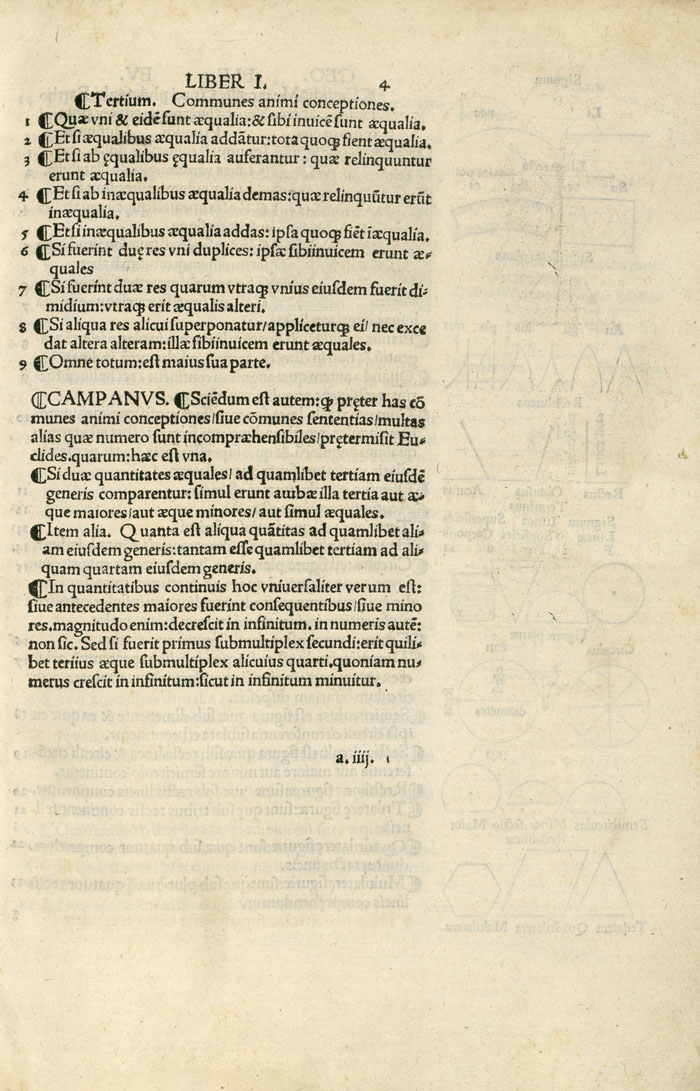 LIBER I. 4
¶Tertium. Communes animi conceptiones.
1 ¶Quæ vni & eidē sunt æqualia:& sibi inuicē sunt æqualia.
2 ¶Et si æqualibus æqualia addātur:tota quoqꝫ fient æqualia.
3 ¶Et si ab ęqualibus ęqualia auferantur: quæ relinquuntur
erunt æqualia.
4 ¶Et si ab inæqualibus æqualia demas:quæ relinquūtur erūt
inæqualia.
5 ¶Et si inæqualibus æqualia addas: ipsa quoqꝫ fiēt īæqualia.
6 ¶Si fuerint duę res vni duplices: ipsæ sibiinuicem erunt æ-
quales
7 ¶Si fuerint duæ res quarum vtraqꝫ vnius eiusdem fuerit di-
midium:vtraqꝫ erit æqualis alteri.
8 ¶Si aliqua res alicui superponatur/appliceturqꝫ ei/ nec exce
dat altera alteram:illæ sibiinuicem erunt æquales.
9 ¶Omne totum:est maius sua parte.
¶CAMPANVS. ¶Sciēdum est autem:qꝫ pręter has cō
munes animi conceptiones/siue cōmunes sententias/multas
alias quæ numero sunt incompræhensibiles/prętermisit Eu-
clides.quarum:hæc est vna.
¶Si duæ quantitates æquales/ ad quamlibet tertiam eiusdē
generis comparentur: simul erunt ambæ illa tertia aut æ-
que maiores/aut æque minores/ aut simul æquales.
¶Item alia. Quanta est aliqua quātitas ad quamlibet ali-
am eiusdem generis:tantam esse quamlibet tertiam ad ali-
quam quartam eiusdem generis.
¶In quantitatibus continuis hoc vniuersaliter verum est:
siue antecedentes maiores fuerint consequentibus/siue mino
res.magnitudo enim:decrescit in infinitum. in numeris autē:
non sic. Sed si fuerit primus submultiplex secundi:erit quili-
bet tertius æque submultiplex alicuius quarti.quoniam nu-
merus crescit in infinitum:sicut in infinitum minuitur.
a. iiij.